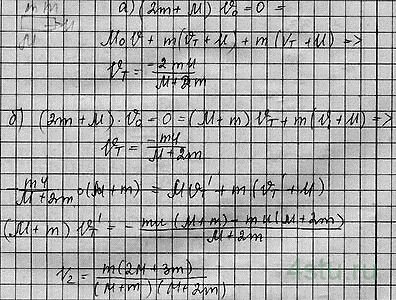 m m
M → u
а) (2m + M) v₀ = 0 =
M₀ v + m(v_T + u) + m (v_T + u) =>
v_T = -2 m u / M + 2m
б) (2m + M) · v₀ = 0 = (M + m) v_T + m (v + u) =>
v_T = -mu / M + 2m
- mu / M + 2m · (M + m) = M v_T' + m (v_T' + u)
(M + m) v_T' = - mu (M + m) - m u (M + 2m) / M + 2m
v₂ = m(2M + 3m) / (M + m) (M + 2m)
4stu.ru